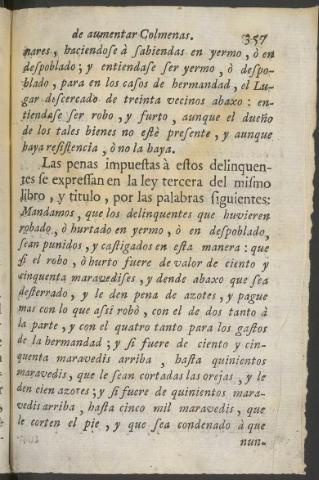 de aumentar Colmenas. 357
nares, haciendose à sabiendas en yermo, ò en
despoblado; y entiendase ser yermo, ò despo-
blado, para en los casos de hermandad, el Lu-
gar descercado de treinta vecinos abaxo: en-
tiendase ser robo, y furto, aunque el dueño
de los tales bienes no estè presente, y aunque
haya resistencia, ò no la haya.
Las penas impuestas à estos delinquen-
tes se expressan en la ley tercera del mismo
libro, y titulo, por las palabras siguientes:
Mandamos, que los delinquentes que huvieren
robado, ò hurtado en yermo, ò en despoblado,
sean punidos, y castigados en esta manera: que
si el robo, ò hurto fuere de valor de ciento y
cinquenta maravedises, y dende abaxo que sea
desterrado, y le den pena de azotes, y pague
mas con lo que assi robò, con el de dos tanto à
la parte, y con el quatro tanto para los gastos
de la hermandad; y si fuere de ciento y cin-
quenta maravedis arriba, hasta quinientos
maravedis, que le sean cortadas las orejas, y le
den cien azotes; y si fuere de quinientos mara-
vedis arriba, hasta cinco mil maravedis, que
le corten el pie, y que sea condenado à que
nun-